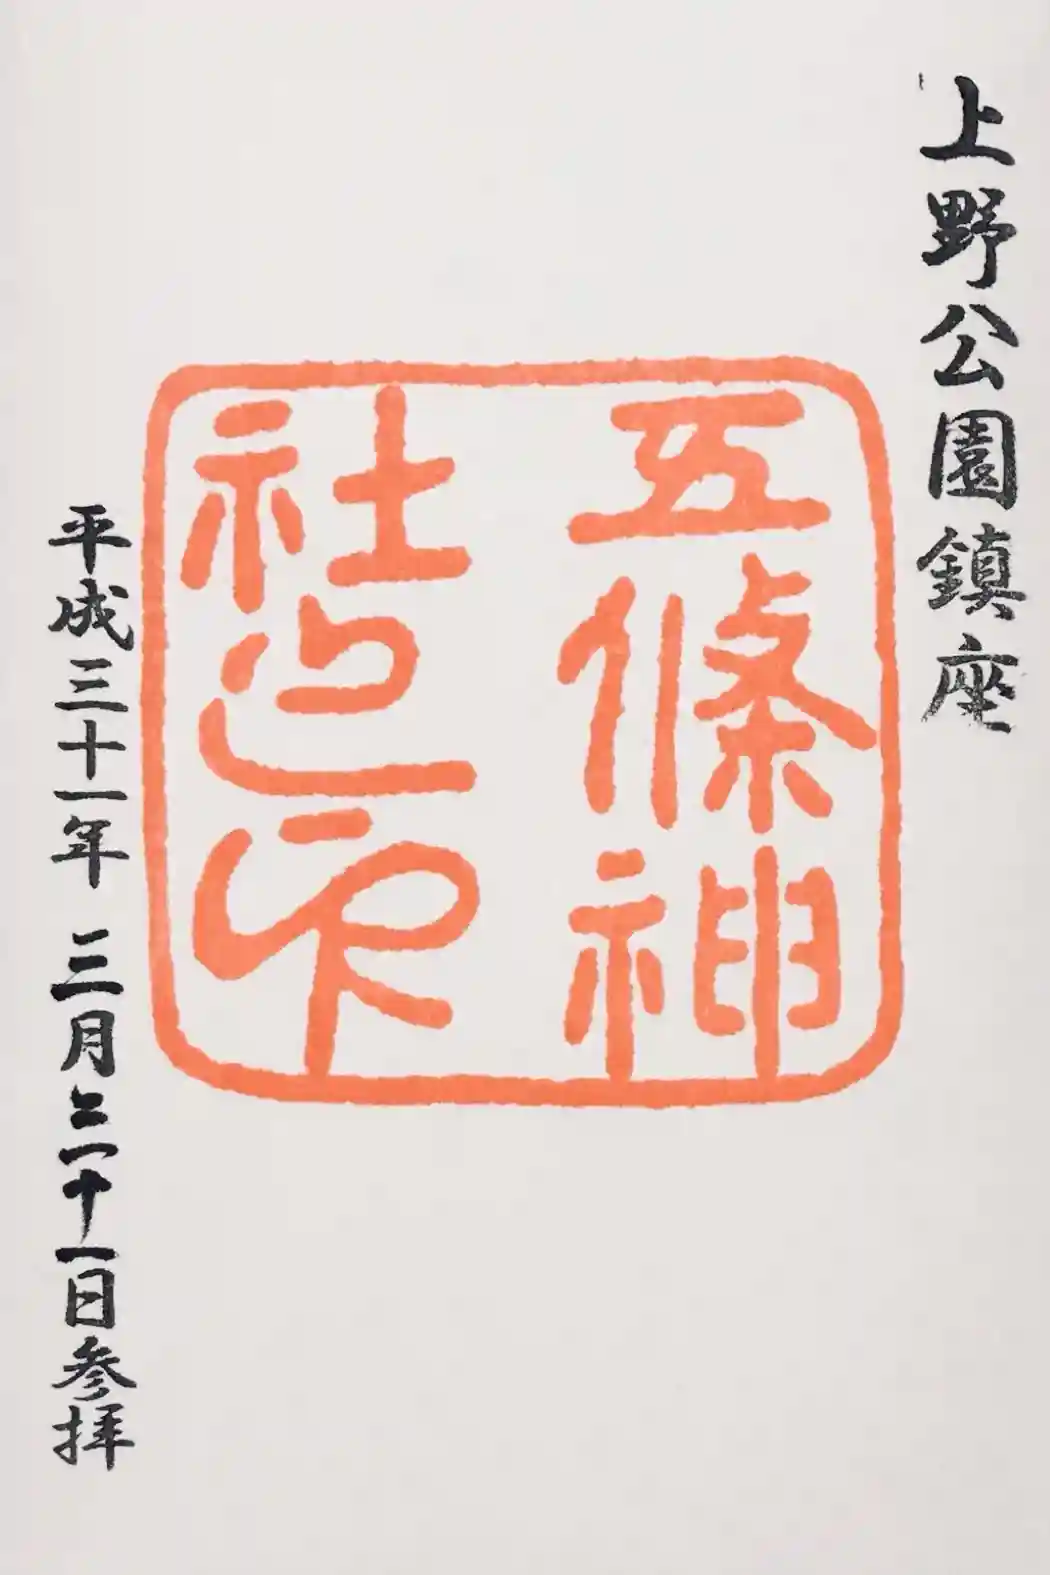 上野公園鎮座
五條神
社之印
平成三十一年 三月三十一日参拝